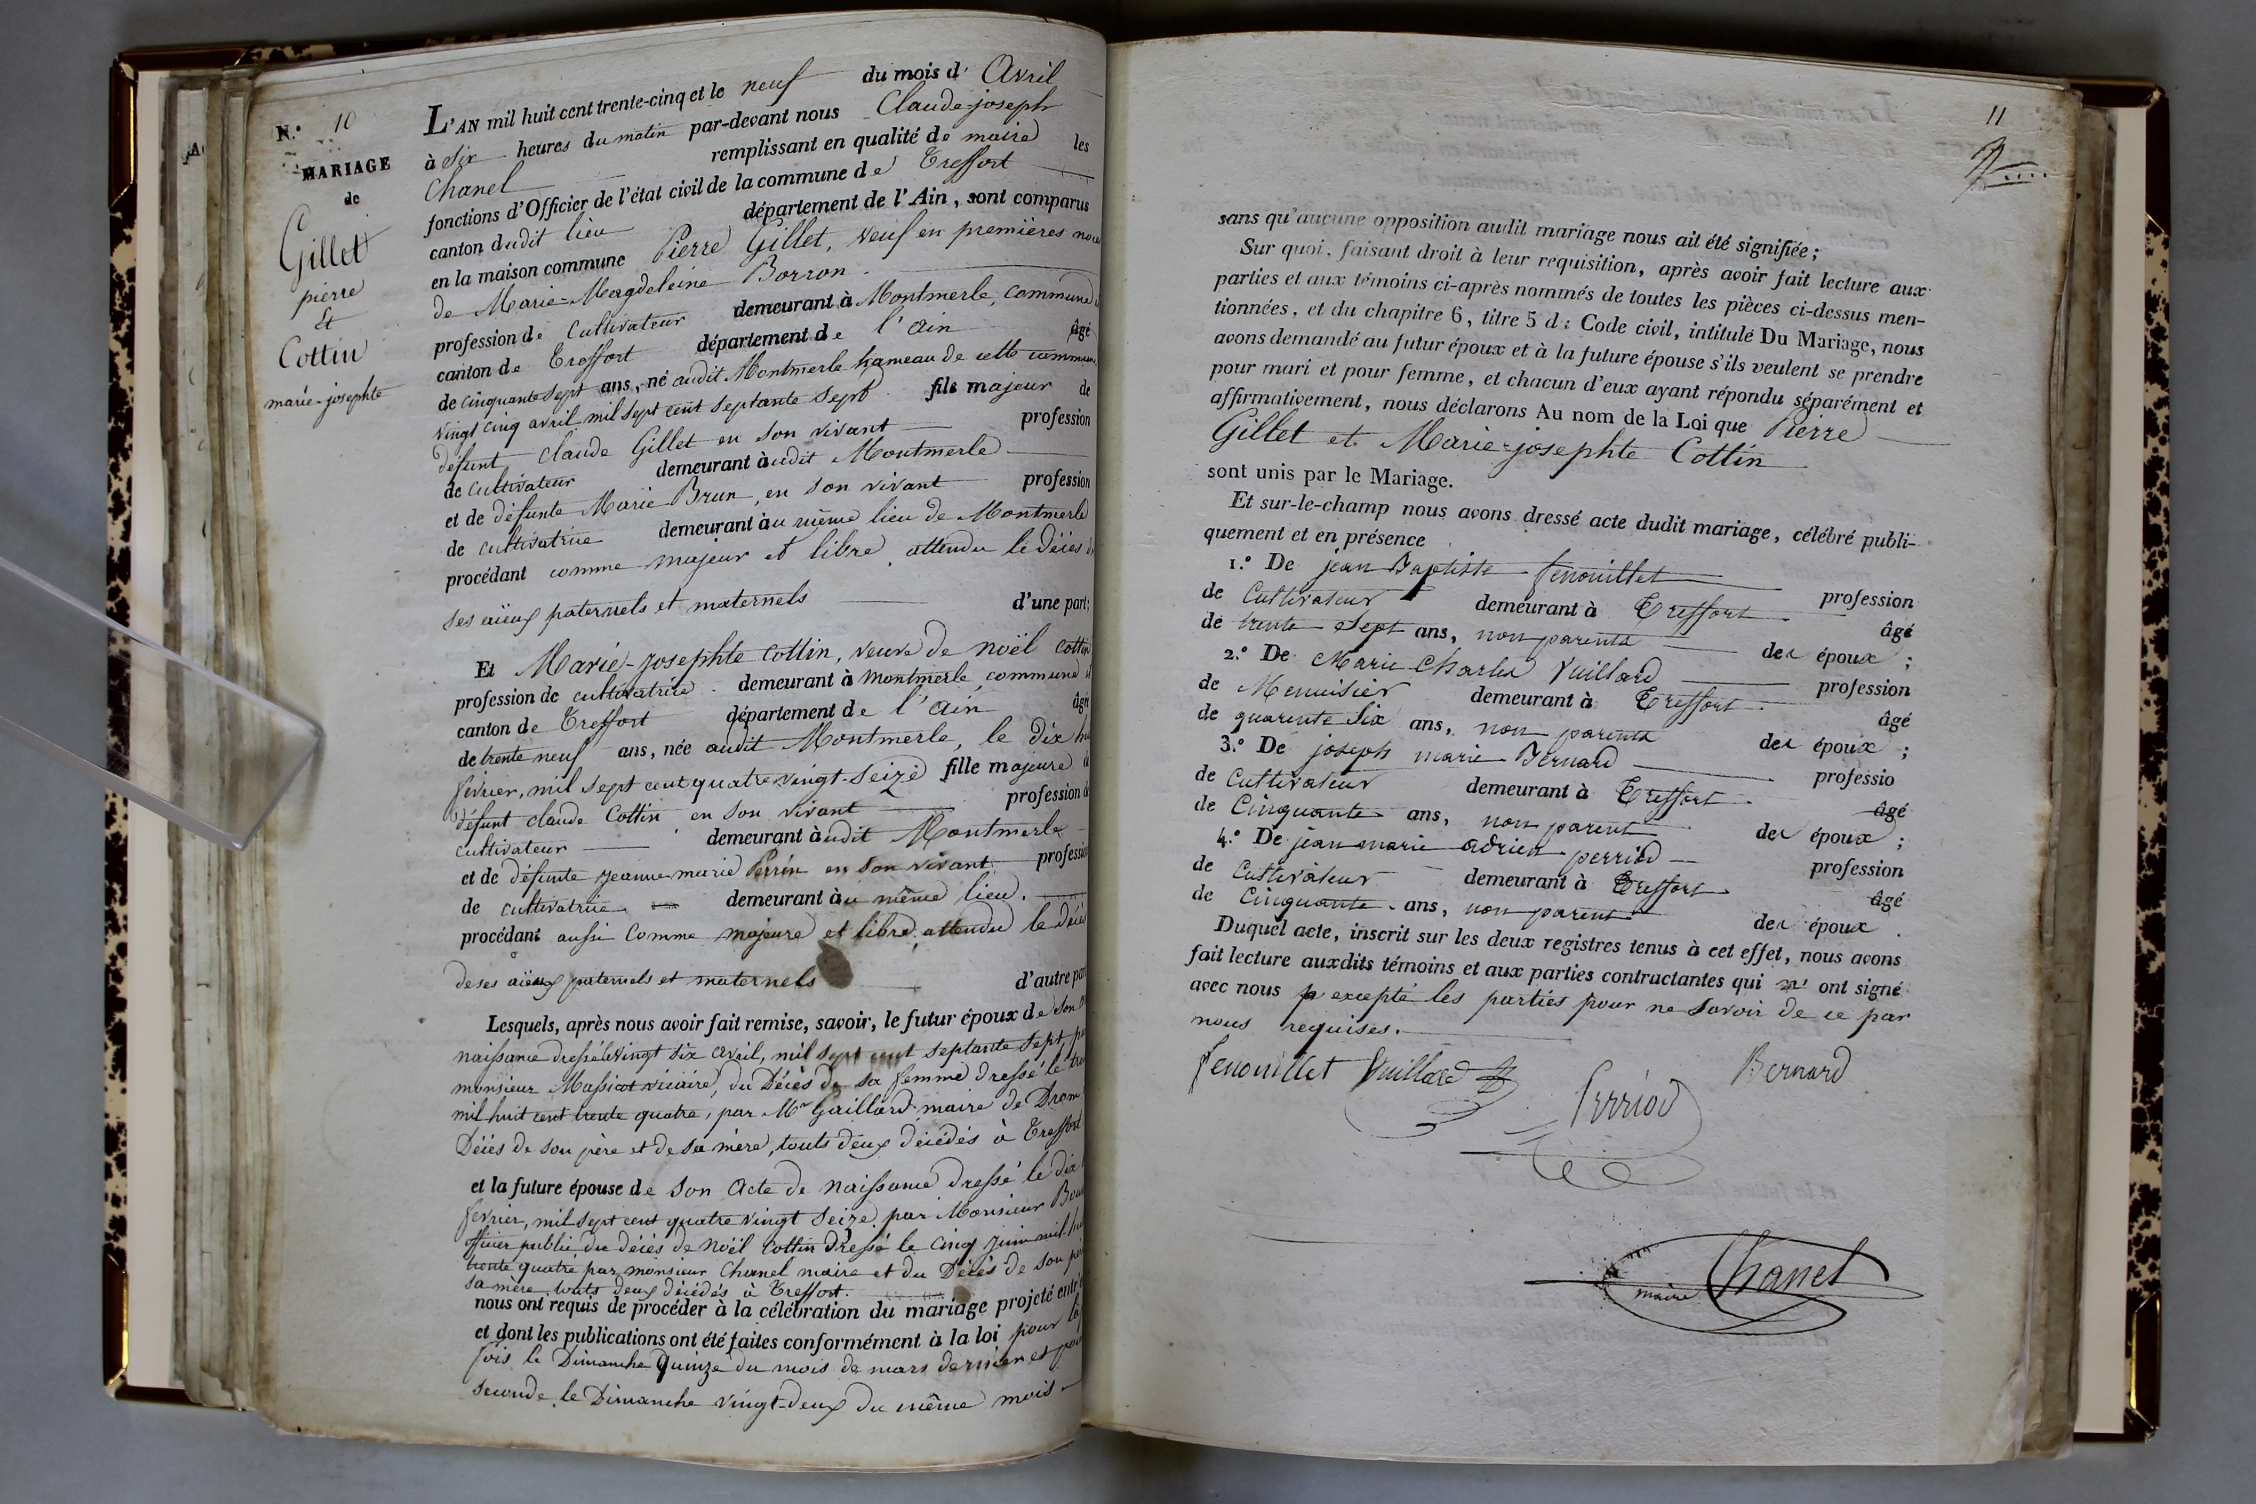 N.° 10
MARIAGE
de
Gillet
pierre
Et
Cottin
marie-josephte
L'AN mil huit cent trente-cinq et le neuf du mois d' Avril
à dix heures du matin par-devant nous Claude-joseph
Chanel remplissant en qualité de maire les
fonctions d'Officier de l'état civil de la commune de Treffort
canton dudit lieu département de l'Ain, sont comparus
en la maison commune Pierre Gillet, veuf en premières
de Marie-Magdeleine Borron
profession de cultivateur demeurant à Montmerle, commune
canton de Treffort département de l'ain âgé
de cinquante sept ans, né audit Montmerle hameau de cette commune
vingt cinq avril mil sept cent septante sept fils majeur de
défunt claude Gillet en son vivant profession
de cultivateur demeurant àudit Montmerle
et de défunte Marie Brun, en son vivant profession
de cultivatrice demeurant àu même lieu de Montmerle
procédant comme majeur et libre attendu le décès
ses aïeux paternels et maternels d'une part;
Et Marie-josephte cottin, veuve de noël cottin
profession de cultivatrice demeurant à montmerle commune
canton de Treffort département de l'ain âgé
de trente neuf ans, née audit Montmerle, le dix
février, mil sept cent quatre vingt-seize fille majeure
défunt claude Cottin en son vivant profession
cultivateur demeurant àudit Montmerle
et de défunte jeanne-marie Perrin en son vivant profession
de cultivatrice demeurant àu même lieu.
procédant aussi comme majeure et libre, attendu le décès
de ses aïeux paternels et maternels d'autre
Lesquels, après nous avoir fait remise, savoir, le futur époux de son
naissance dressé le vingt six avril, mil sept cent septante sept,
monsieur Massicot vicaire, du Décès de sa femme dressé le
mil huit cent trente quatre, par Mr Gaillard maire de Drom
Décès de son père et de sa mère, touts deux décédés à Treffort
et la future épouse de son Acte de naissance dressé le dix
fevrier, mil sept cent quatre vingt seize par Monsieur
officier public du décès de Noël Cottin dressé le cinq juin mil
trente quatre par monsieur Chanel maire et du Décès de son
sa mère, touts deux décédés à Treffort.
nous ont requis de procéder à la célébration du mariage projeté
et dont les publications ont été faites conformément à la loi pour
fois, le Dimanche Quinze du mois de mars dernier et
seconde, le Dimanche vingt-deux du même mois
11
sans qu'aucune opposition audit mariage nous ait été signifiée;
Sur quoi, faisant droit à leur requisition, après avoir fait lecture aux
parties et aux témoins ci-après nommés de toutes les pièces ci-dessus men-
tionnées, et du chapitre 6, titre 5 du Code civil, intitulé Du Mariage, nous
avons demandé au futur époux et à la future épouse s'ils veulent se prendre
pour mari et pour femme, et chacun d'eux ayant répondu séparément et
affirmativement, nous déclarons Au nom de la Loi que Pierre
Gillet et Marie-josephte Cottin
sont unis par le Mariage.
Et sur-le-champ nous avons dressé acte dudit mariage, célébré publi-
quement et en présence
1.° De jean Baptiste fenouillet profession
de Cultivateur demeurant à Treffort âgé
de trente Sept ans, non parents des époux ;
2.° De Marie Charles Vuillard profession
de Menuisier demeurant à Treffort âgé
de quarente Six ans, non parents des époux ;
3.° De joseph marie Bernard professio
de Cultivateur demeurant à Treffort âgé
de Cinquante ans, non parent des époux ;
4.° De jean marie adrien perriod profession
de Cultivateur demeurant à Treffort âgé
de Cinquante ans, non parent des époux .
Duquel acte, inscrit sur les deux registres tenus à cet effet, nous avons
fait lecture auxdits témoins et aux parties contractantes qui ont signé
avec nous excepté les parties pour ne savoir de ce par
nous requises.
fenouillet Vuillard Bernard
Perriod
maire Chanel